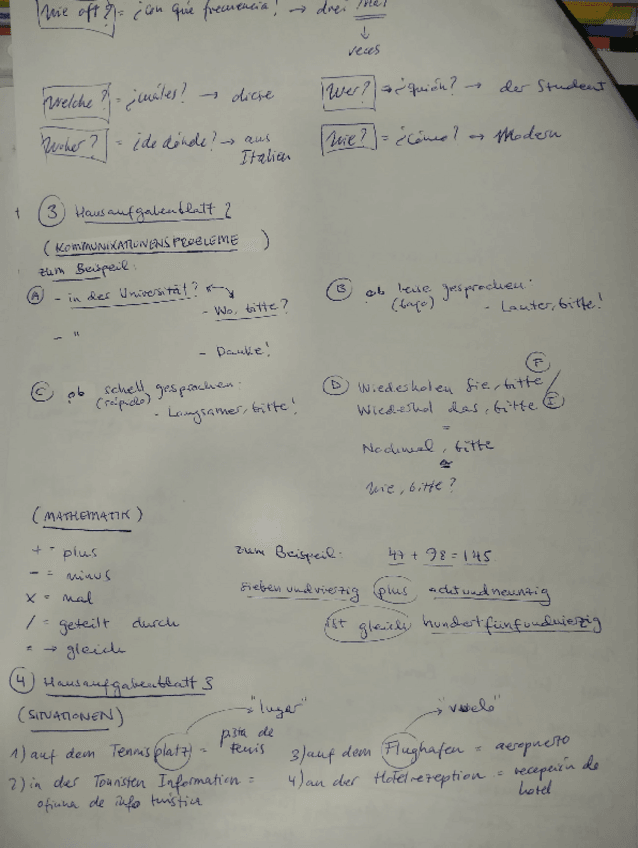 Wie oft? = ¿con qué frecuencia? → drei Mal
↓
veces
Welche? = ¿cuáles? → diese
Wer? → ¿quién? → der Student
Woher? = ¿de dónde? → aus Italien
Wie? = ¿Cómo? → Modern
3 Hausaufgabenblatt 2
(KOMMUNIKATIONENSPROBLEME)
zum Beispeil:
A - in der Universität?
- Wo, bitte?
- "
- Danke!
B ob leise gesprochen:
(bajo) - Lauter, bitte!
C ob schell gesprochen:
(rápido) - Langsamer, bitte!
D Wiederholen Sie, bitte F
Wiederhol das, bitte I
=
Nochmal, bitte
≅
Wie, bitte?
(MATHEMATIK)
+ = plus
- = minus
x = mal
/ = geteilt durch
= → gleich
zum Beispeil: 47 + 98 = 145
siebenundvierzig plus achtundneunzig
ist gleich hundertfünfundvierzig
4 Hausaufgabenblatt 3
(SITUATIONEN)
"lugar"
"vuelo"
1) auf dem Tennisplatz = pista de tenis
2) in der Touristen Information =
oficina de info turística
3) auf dem Flughafen = aeropuerto
4) an der Hotelrezeption = recepción de hotel